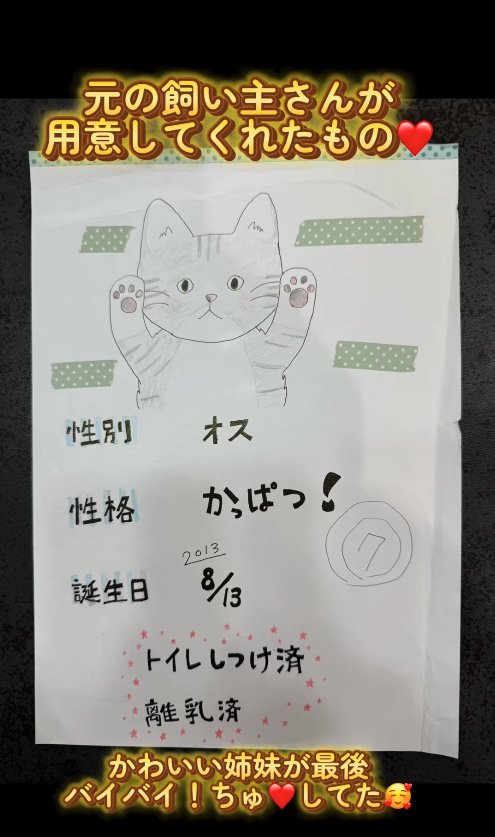 元の飼い主さんが
用意してくれたもの❤️
性別 オス
性格 かっぱつ！
⑦
2013
誕生日 8/13
トイレしつけ済
離乳済
かわいい姉妹が最後
バイバイ！ちゅ❤️してた🥰